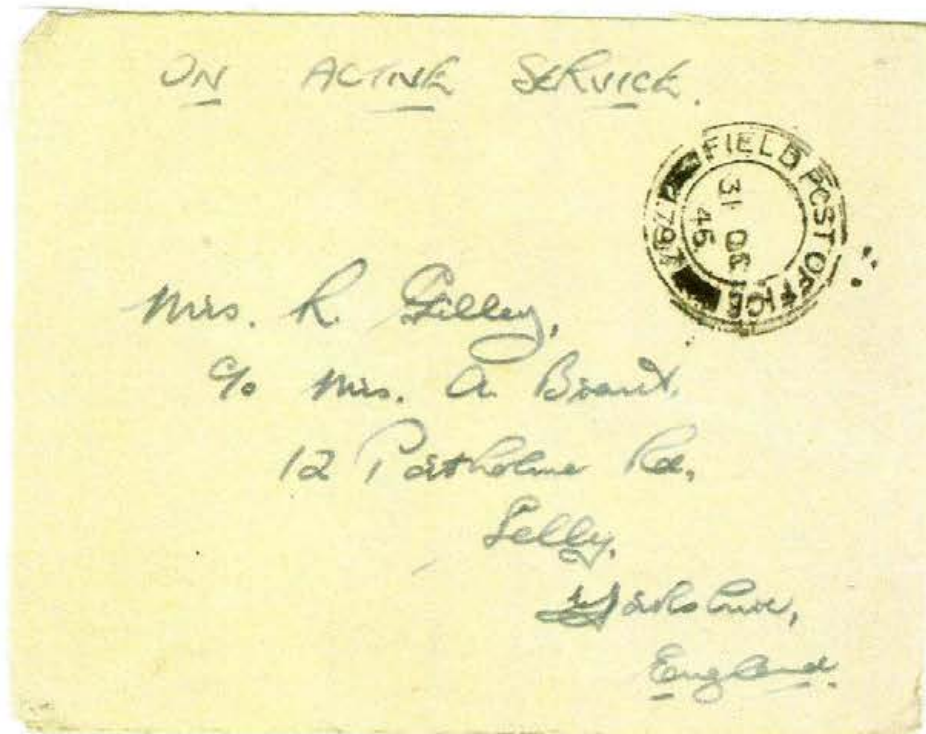 ON ACTIVE SERVICE.
FIELD POST OFFICE
31 DE
45
Mrs. R. Filley,
c/o Mrs. A. Brant.
12 Portholme Rd,
Selby,
Yorkshire,
England.